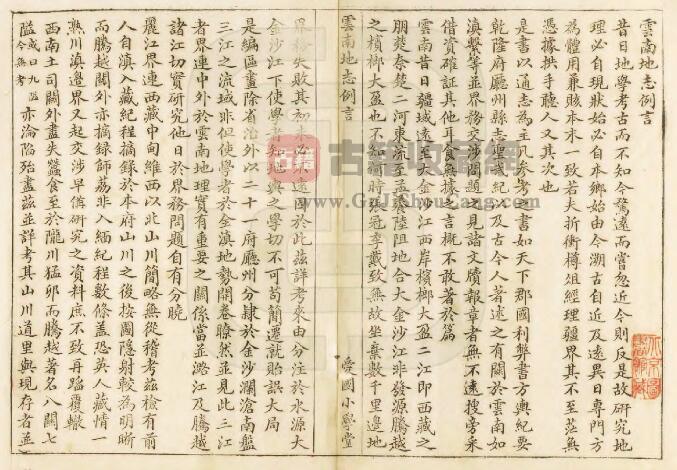 雲南地志例言
昔日地學考古而不知今驚遠而嘗忽近今則反是故研究地
理必自現狀始必自本鄉始由今溯古自近及遠異日專門方
為體用兼賅本末一致若夫折衝樽俎經理疆界其不至茫無
憑據拱手聽人又其次也
是書以通志為主凡參考之書如天下郡國利弊書方輿紀要
乾隆府廳州縣志聖武紀以及古今人著述之有關於雲南如
滇繫等並界務交涉問題之見諸文牘報章者無不遠搜旁采
借資確証其他耳食無據之言概不敢著於篇
雲南昔日疆域遠至大金沙江西岸檳榔大盈二江即西藏之
朋楚奈楚二河東流至孟養陸阻地合大金沙江非發源騰越
之檳榔大盈也不知何時裂冠季戴致無故坐棄數千里邊地
雲南地志例言
愛國小學堂
界務失敗其初未必不遠因於此茲詳考來由分注於水源大
金沙江下使學者知地輿之學切不可苟簡遷就貽誤大局
是編區畫除省治外以二十一府廳州分隸於金沙瀾滄南盤
三江之流域非但使學者於全滇地勢開卷瞭然並見此三江
者界連中外於雲南地理實有重要之關係當並潞江及騰越
諸江切實研究他日於界務問題自有分曉
麗江界連西藏中甸維西以北山川簡略無從稽考茲檢有前
人自滇入藏紀程摘錄於本府山川之後按圖隱射較為明晰
而騰越關外亦摘錄師荔扉入緬紀程數條蓋恐英人藏情一
熟川滇邊界又起交涉早備研究之資料庶不致再蹈覆轍
西南土司關外盡失蠶食至於隴川猛卯而騰越著名八關七
隘或曰九隘今無考亦淪陷殆盡茲並詳考其山川道里與現存者並
古籍收藏网
www.GuJiShouCang.Com